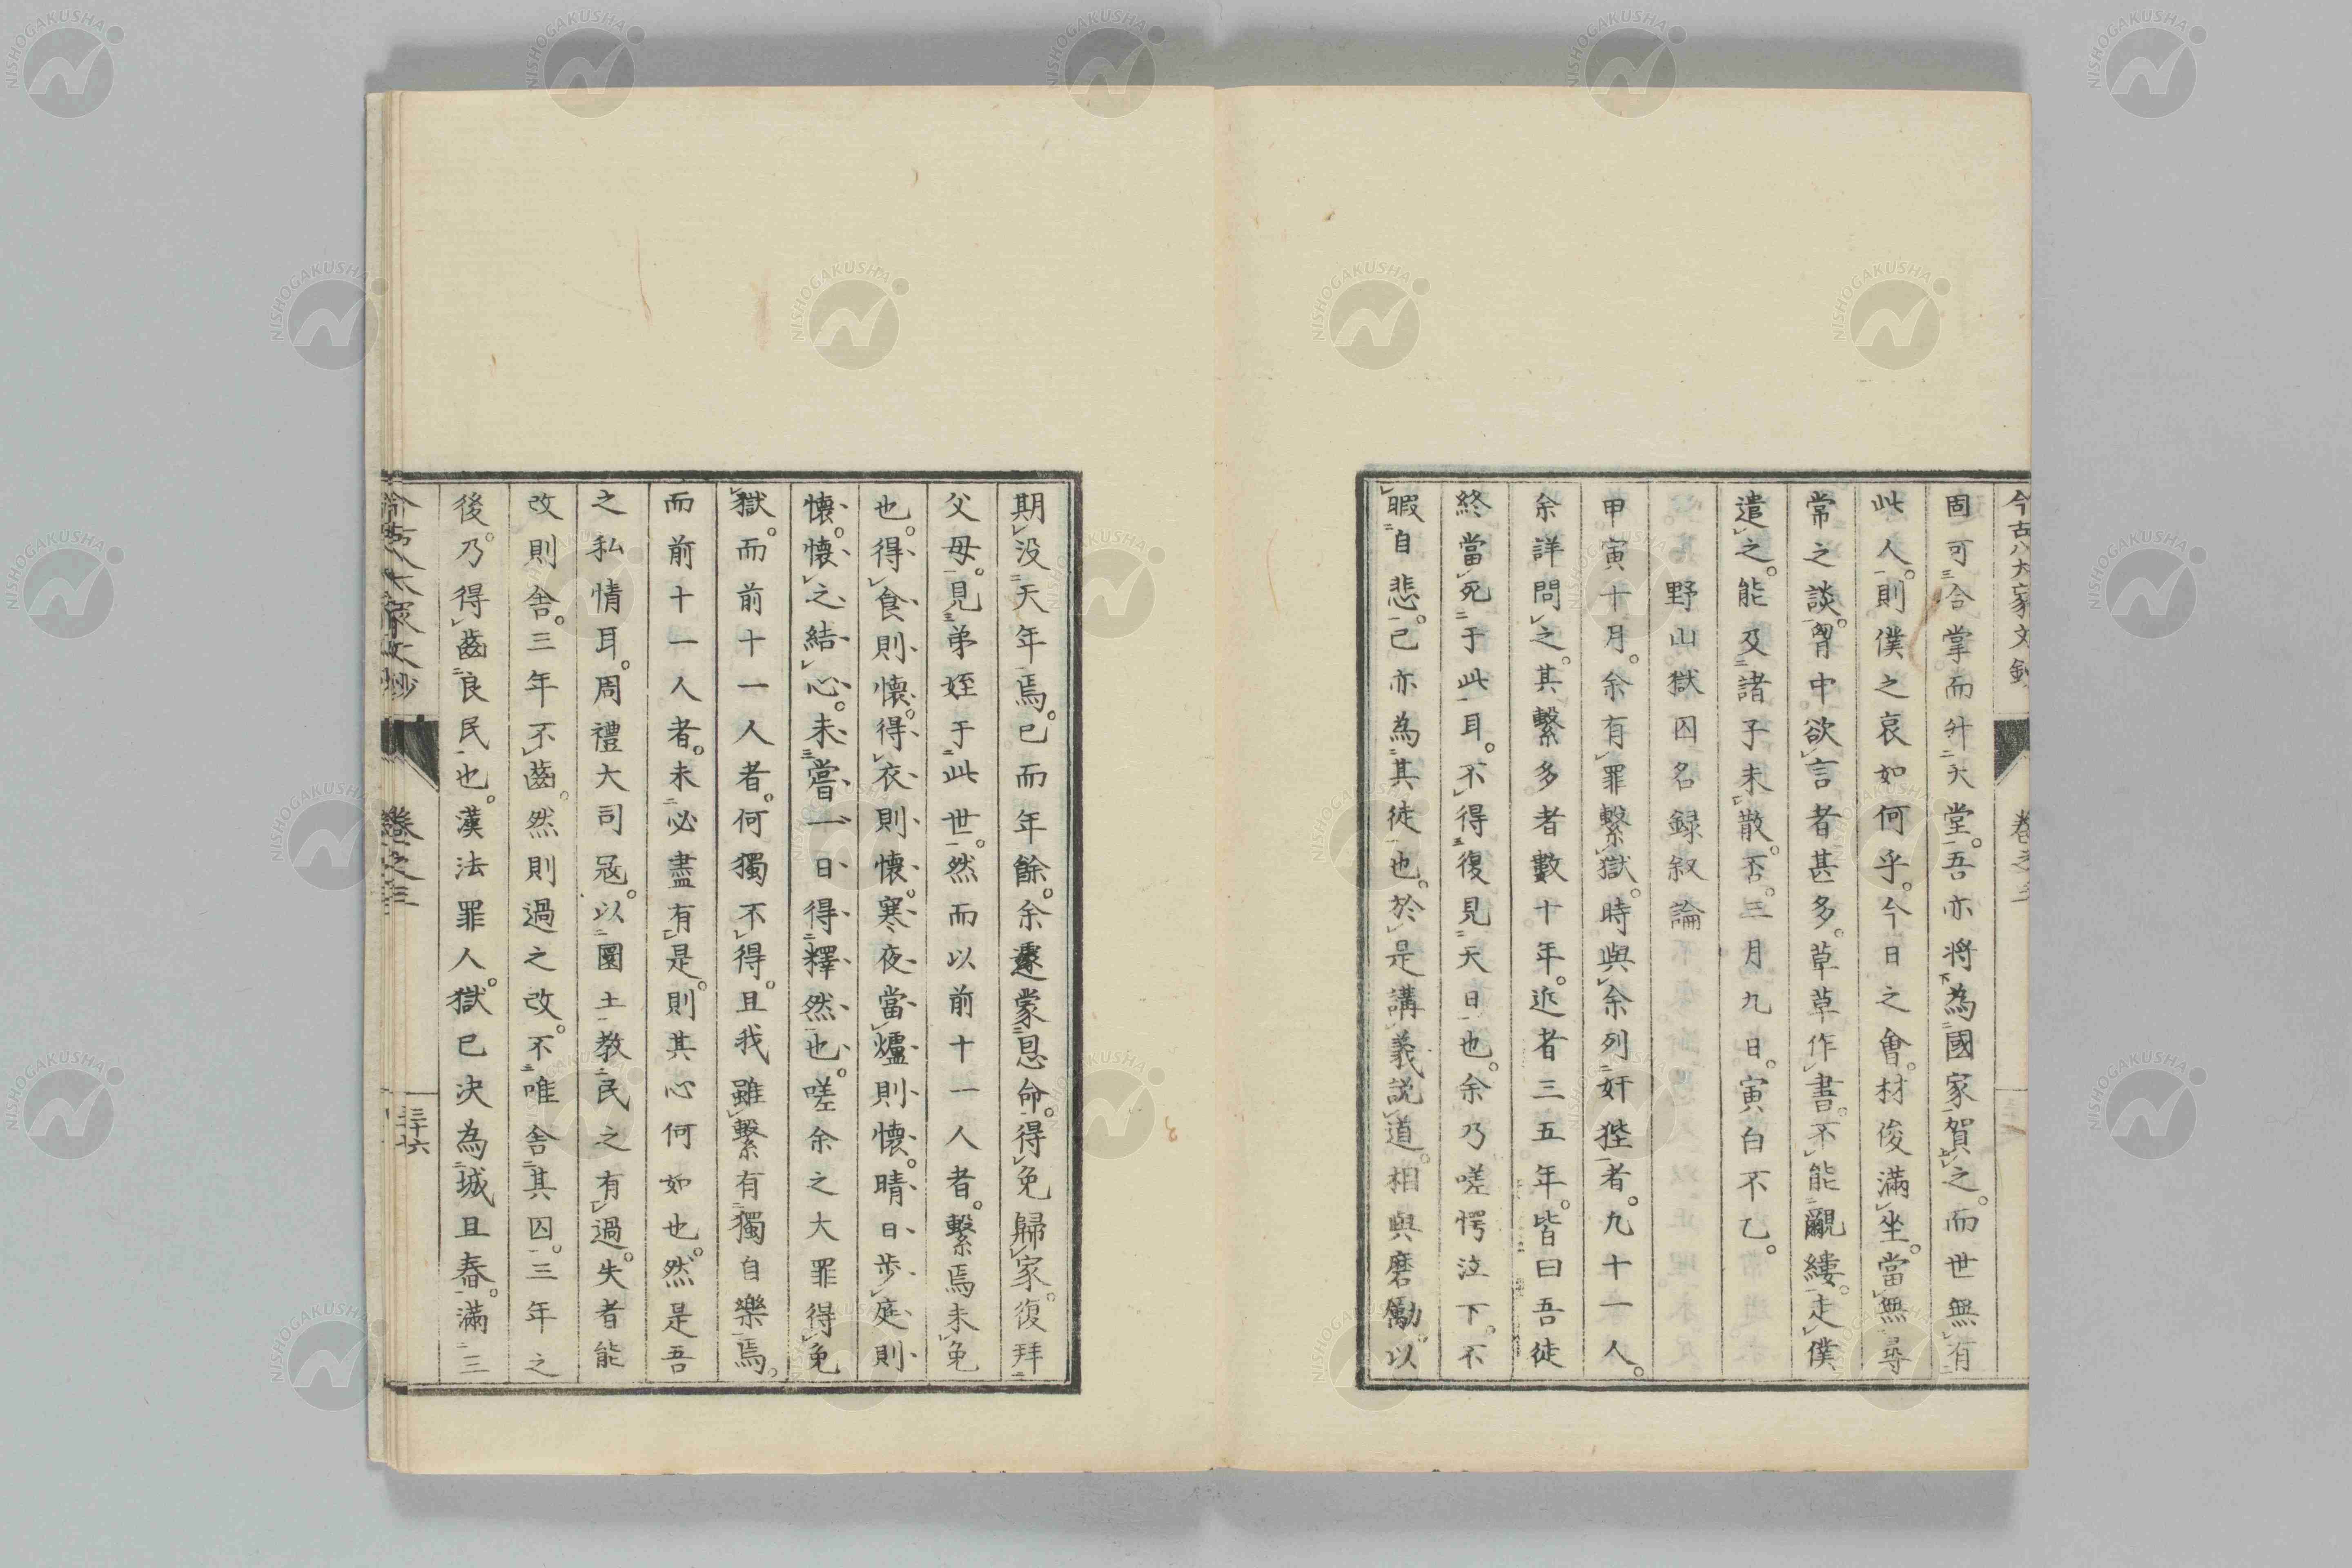 今古八大家文鈔 卷之三
固可合掌而升天堂。吾亦將為國家賀之。而世無有
此人。則僕之哀如何乎。今日之會。材俊滿坐。當無尋
常之談。胷中欲言者甚多。草草作書。不能覼縷。走僕
遣之。能及諸子未散。否。三月九日。寅白不乙。
野山獄囚名録叙論
甲寅十月。余有罪繫獄。時與余列奸狴者。九十一人。
余詳問之。其繫多者數十年。近者三五年。皆曰吾徒
終當死于此耳。不得復見天日也。余乃嗟愕泣下。不
暇自悲。已亦為其徒也。於是講義説道。相與磨勵。以
期没天年焉。已而年餘。余遽蒙恩命。得免歸家。復拜
父母。見弟姪于此世。然而以前十一人者。繫焉未免
也。得食則懷。得衣則懷。寒夜當爐則懷。晴日步庭則
懷。懷之結心。未嘗一日得釋然也。嗟余之大罪得免
獄。而前十一人者。何獨不得。且我雖繫有獨自樂焉。
而前十一人者。未必盡有是。則其心何如也。然是吾
之私情耳。周禮大司寇。以圜土教民之有過。失者能
改則舍。三年不齒。然則過之改。不唯舍其囚。三年之
後。乃得齒良民也。漢法罪人。獄已決為城且舂。滿三
卷之三 三十六
NISHOGAKUSHA